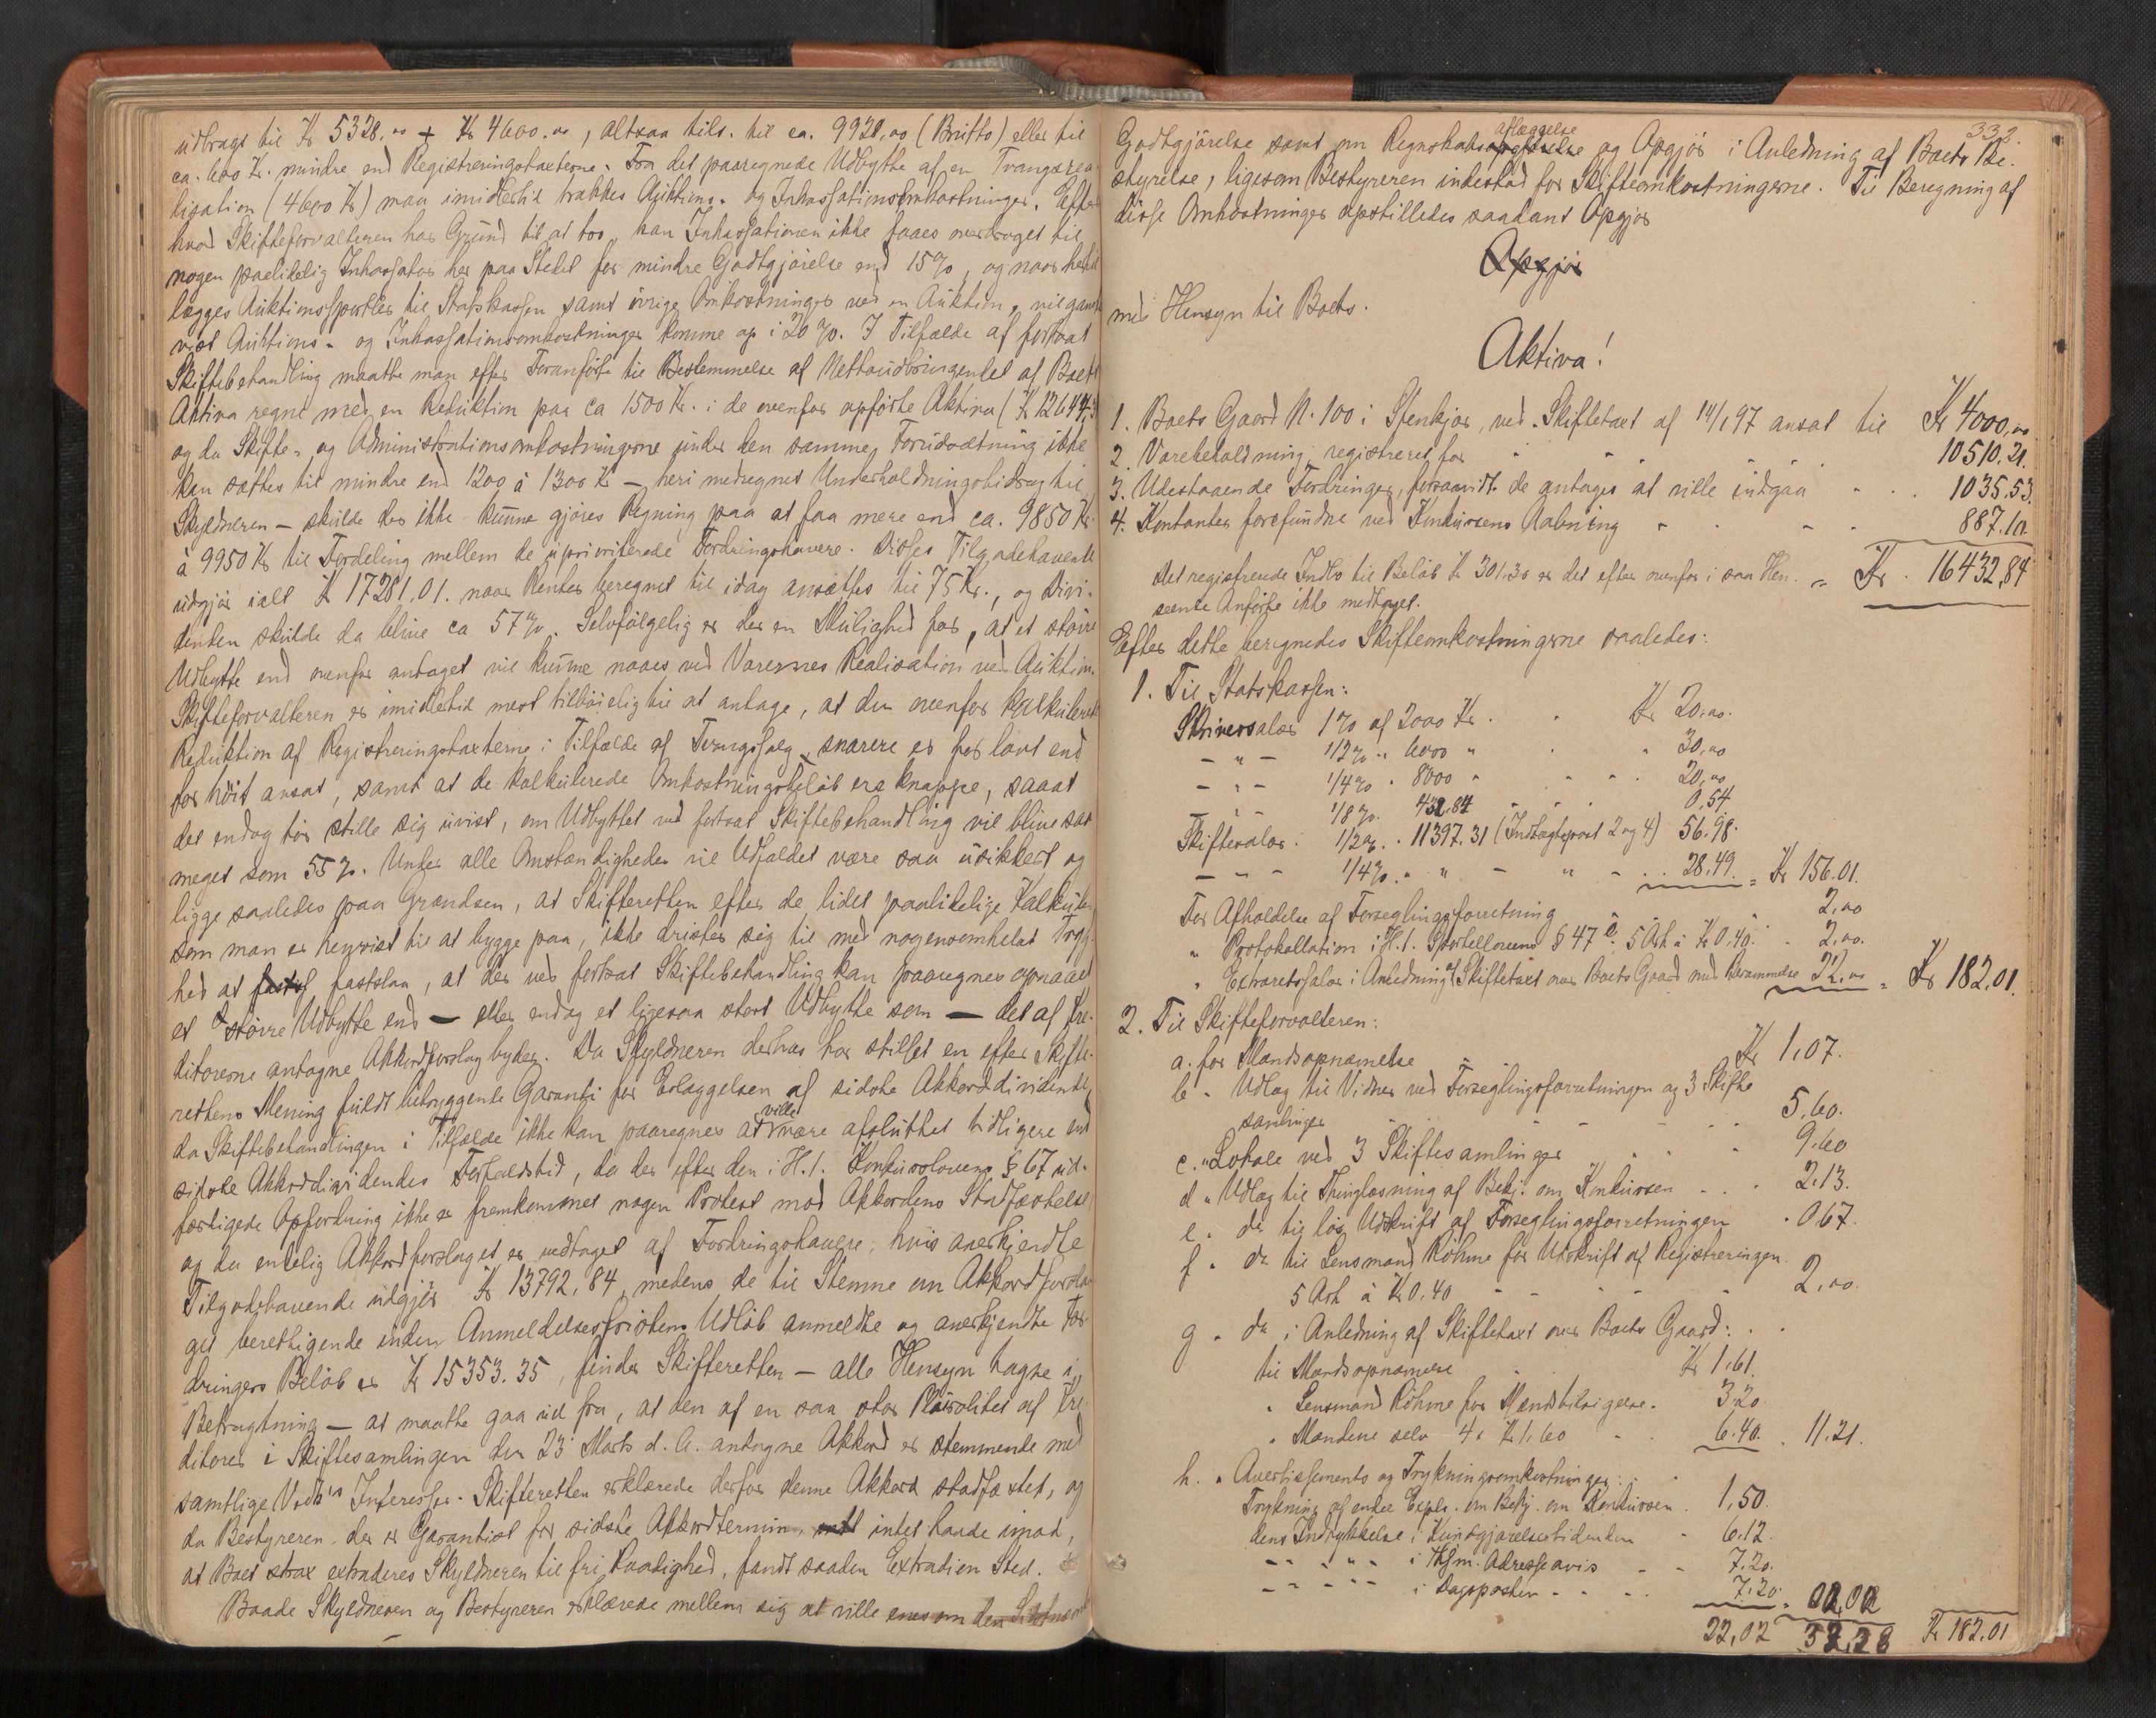 udbragt til Kr 5328.00 + Kr 4600.00, altsaa tils. til ca. 9928,00 (Brutto) eller til
ca. 600 Kr. mindre end Registreringstaxterne. Fra det paaregnede Udbytte af en Tvangsrea-
lisation (4600 Kr) maa imidlertid trækkes Auktions- og Inkassationsomkostninger. Efter
hvad Skifteforvalteren har Grund til at tro, kan Inkassationen ikke faaes overdraget til
nogen paalidelig Inkassator her paa Stedet for mindre Godtgjörelse end 15%, og naar hertil
lægges Auktionssportler til Statskassen samt övrige Omkostninger ved en Auktion, vil ganske
vist Auktions- og Inkassationsomkostninger komme op i 20%. I Tilfælde af fortsat
Skiftebehandling maatte man efter Foranförte til Bestemmelse af Nettoudbringendet af Boets
Aktiva regne med en Reduktion paa ca 1500 Kr. i de ovenfor opførte Aktiva (Kr 12644.
og da Skifte- og Administrationsomkostningerne under den samme Forudsætning ikke
kan sættes til mindre end 1200 à 1300 Kr — heri medregnet Underholdningsbidrag til
Skyldneren — skulde der ikke kunne gjöres Regning paa at faa mere end ca. 9850 Kr.
à 9950 Kr til Fordeling mellem de uprioriterede Fordringshavere. Disses Tilgodehavende
udgjör ialt Kr 17281.01. naar Renter beregnet til idag ansættes til 75 Kr., og Divi-
denden skulde da blive ca 57%. Selvfölgelig er der en Mulighed for, at et större
Udbytte end ovenfor antaget vil kunne naaes ved Varernes Realisation ved Auktion.
Skifteforvalteren er imidlertid mest tilböielig til at antage, at den ovenfor kalkulerede
Reduktion af Registreringstaxterne i Tilfælde af Tvangssalg snarere er for lavt end
for höit ansat, samt at de kalkulerede Omkostningsbelöb ere knappe, saaat
det endog tör stille sig uvist, om Udbyttet ved fortsat Skiftebehandling vil blive saa
meget som 55%. Under alle Omstændigheder vil Udfaldet være saa usikkert og
ligge saaledes paa Grændsen, at Skifteretten efter de lidet paalidelige Kalkuler
som man er henvist til at bygge paa, ikke drister sig til med nogensomhelst Tryg-
hed at fastslaa, at der ved fortsat Skiftebehandling kan paaregnes opnaaet
et större Udbytte end — eller endog et ligesaa stort Udbytte som — det af Kre-
ditorerne antagne Akkordforslag byder. Da Skyldneren derhos har stillet en efter Skifte-
rettens Mening fuldt betryggende Garanti for Erlæggelsen af sidste Akkorddividende,
da Skiftebehandlingen i Tilfælde ikke kan paaregnes at ville være afsluttet tidligere end
sidste Akkorddividendes Forfaldstid, da der efter den i H.t. Konkurslovens § 67 ud-
færdigede Opfordring ikke er fremkommet nogen Protest mod Akkordens Stadfæstelse
og da endelig Akkordforslaget er vedtaget af Fordringshavere, hvis anerkjendte
Tilgodehavende udgjör Kr 13792,84, medens de til Stemme om Akkordforsla-
get berettigende inden Anmeldelsesfristens Udlöb anmeldte og anerkjendte For-
dringers Belöb er Kr 15353.35, finder Skifteretten — alle Hensyn tagne i
Betragtning — at maatte gaa ud fra, at den af en saa stor Pluralitet af Kre-
ditorer i Skiftesamlingen den 23' Marts d. A. antagne Akkord er stemmende med
samtlige Vedk's Interesser. Skifteretten erklærede derfor denne Akkord stadfæstet, og
da Bestyreren, der er Garantist for sidste Akkordtermin, intet havde imod,
at Boet strax extraderes Skyldneren til fri Raadighed, fandt saadan Extradion Sted.
Baade Skyldneren og Bestyreren erklærede mellem sig at ville enes om den
332.
Godtgjörelse samt om Regnskabsaflæggelse og Opgjör i Anledning af Boets Be-
styrelse, ligesom Bestyreren indestod for Skifteomkostningerne. Til Beregning af
disse Omkostninger opstilledes saadant Opgjör
Opgjör
med Hensyn til Boets.
Aktiva!
1. Boets Gaard N. 100 i Stenkjær, ved Skiftetaxt af 14/1 97 ansat til Kr 4000,00
2. Varebeholdning registreret for " " " 10510.21.
3. Udestaaende Fordringer, forsaavidt de antages at ville indgaa - - 1035.53.
4. Kontanter forefundne ved Konkursens Aabning - - - 887.10.
Det registrerede Indbo til Belöb Kr 301.30 er det efter ovenfor i saa Hen- = Kr. 16432,84
seende Anförte ikke medtaget.
Efter dette beregnedes Skifteomkostningerne saaledes:
1. Til Statskassen:
Skriversalær 1% af 2000 Kr. Kr 20.00.
- " - 1/2% " 6000 " " 30,00
- " - 1/4% " 8000 " " 20,00
- " - 1/8% 432.84 " 0,54
Skiftesalær. 1/2%. 11397.31 (Indtægtspost 2 og 4) 56.98.
- " - 1/4%. " " - " - . . 28.49. = Kr 156.01.
For Afholdelse af Forseglingsforretning 2,00
" Protokollation i H.t. Sportellovens § 47 5 Ark à Kr 0.40. - 2,00.
" Extraretssalær i Anledning af Skiftetaxt over Boets Gaard med Berammelse 22,00 = Kr 182,01.
2. Til Skifteforvalteren:
a. for Mandsopnævnelse Kr 1,07.
b " Udlæg til Vidner ved Forseglingsforretningen og 3 Skifte
samlinger - - - 5,60.
c. " Lokale ved 3 Skiftesamlinger - - 9.60
d " Udlæg til Thinglæsning af Bekj. om Konkursen - - 2.13.
e. do til lös Udskrift af Forseglingsforretningen . 0.67.
f. do til Lensmand Röhme for Udskrift af Registreringen
5 Ark à Kr 0,40 - - - 2,00.
g. do i Anledning af Skiftetaxt over Boets Gaard: . .
til Mandsopnævnelse Kr 1,61.
" Lensmand Röhme for Mandstilsigelse. 3,20
" Mændene selv 4 à Kr 1.60 - - 6.40. . 11.21.
h. " Avertissements og Trykningsomkostninger:
Trykning af endel Expl. om Bekj. om Konkursen. 1,50.
dens Indrykkelse i Kundgjörelsestidenden - 6.12.
- " - " - i Thjm. Adresseavis - - 7.20.
- " - " - i Dagsposten - - - 7.20.
22,02 Kr 182,01